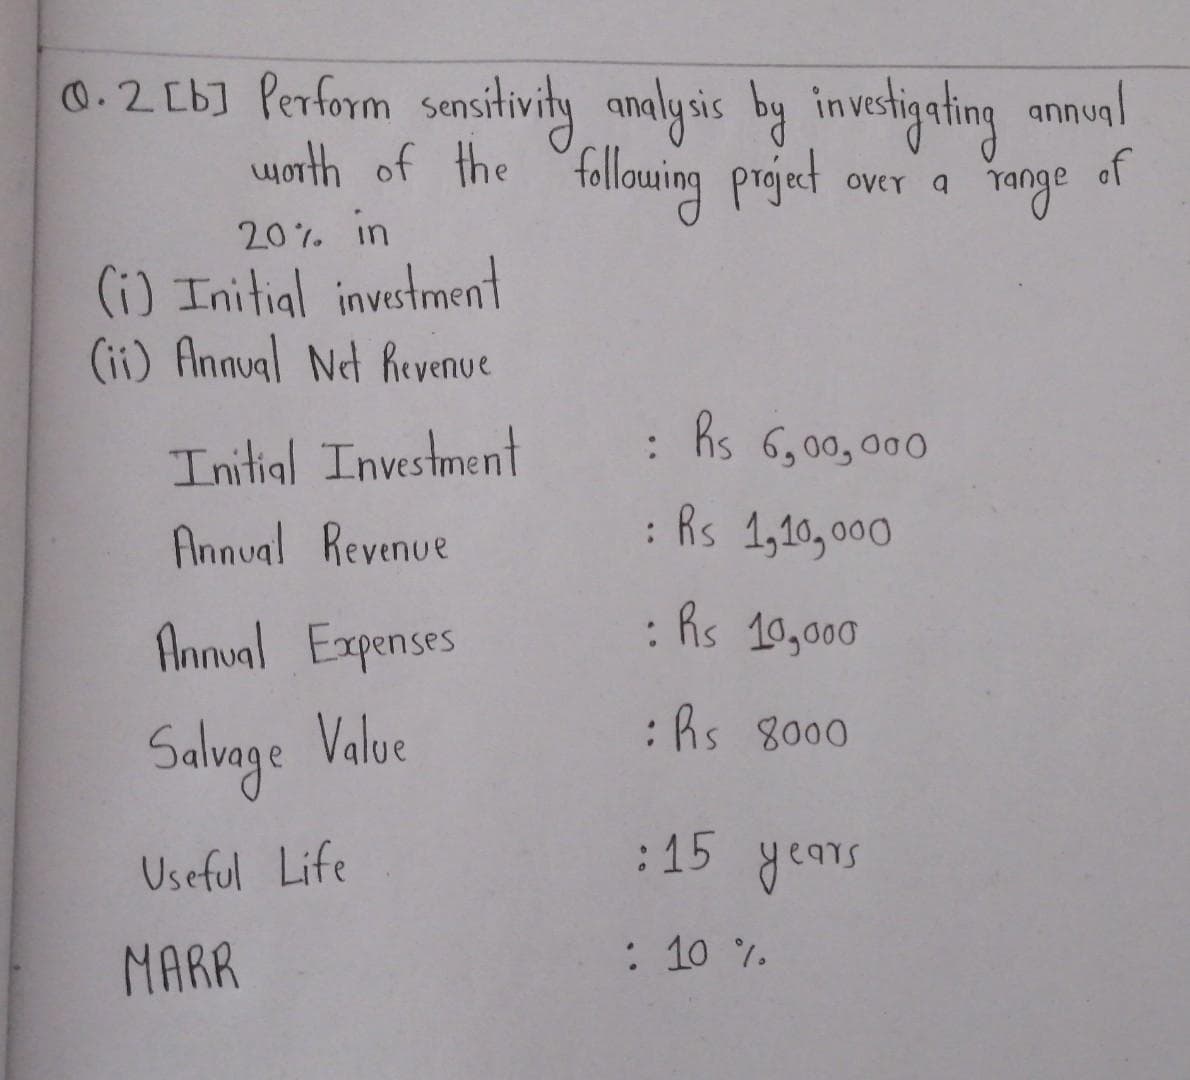 Q.2 [b] Perform sensitivity analysis by investigating annual
worth of the following project over a range of
20% in
(i) Initial investment
(ii) Annual Net Revenue
Initial Investment : Rs 6,00,000
Annual Revenue : Rs 1,10,000
Annual Expenses : Rs 10,000
Salvage Value : Rs 8000
Useful Life : 15 years
MARR : 10 %